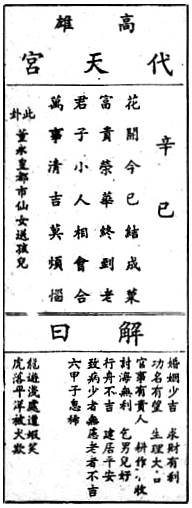 高雄
代天宮
辛巳
花開今已結成菓
富貴榮華終到老
君子小人相會合
萬事清吉莫煩惱
此卦 董永皇都市仙女送孩兒
解曰
婚姻少吉 求財有利
功名有望 生理大吉
官事有貴人 耕作收
討海無利 乞男兒好
行舟不吉 建居平安
致病少者無慮老者不吉
六甲子息稀
龍遊淺處遭蝦笑
虎落平洋被犬欺